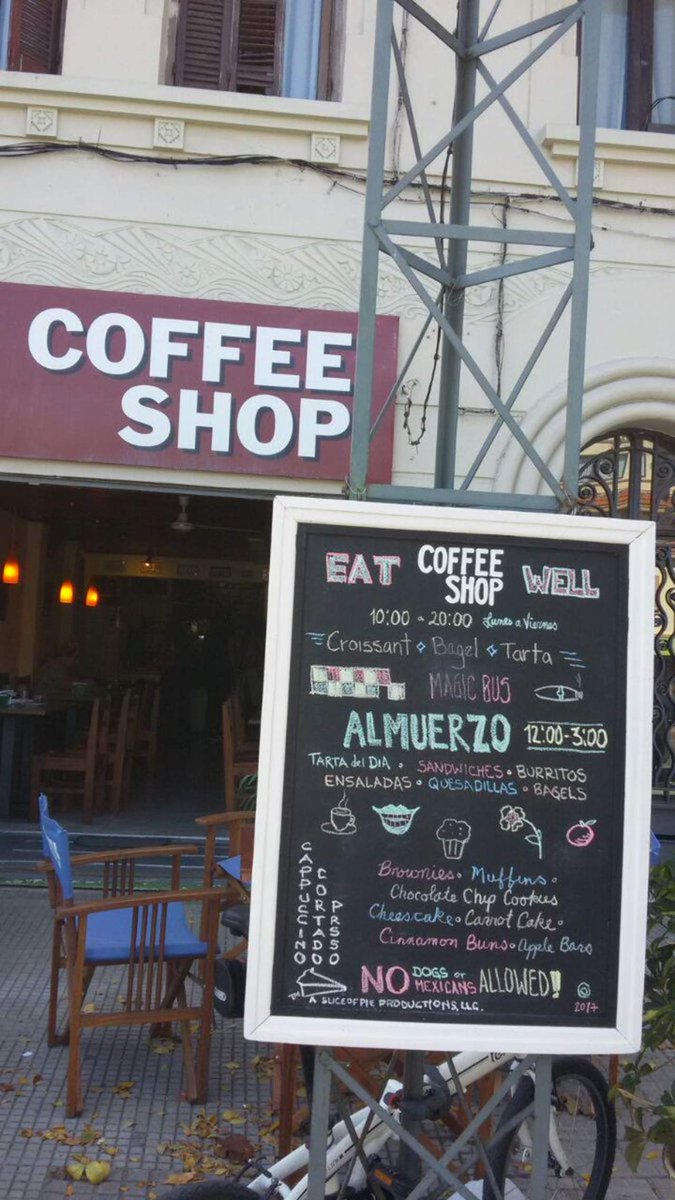 COFFEE
SHOP
EAT COFFEE SHOP WELL
10:00 a 20:00 Lunes a Viernes
Croissant Bagel Tarta
MAGIC BUS
ALMUERZO 12:00-3:00
TARTA del DIA • SANDWICHES • BURRITOS
ENSALADAS • QUESADILLAS • BAGELS
CAPPUCCINO
CORTADO
PRSSO
Brownies • Muffins •
Chocolate Chip Cookies
Cheescake • Carrot Cake •
Cinnamon Buns • Apple Bars
NO DOGS or MEXICANS ALLOWED!!
TM A SLICE OF PIE PRODUCTIONS, LLC. 2017